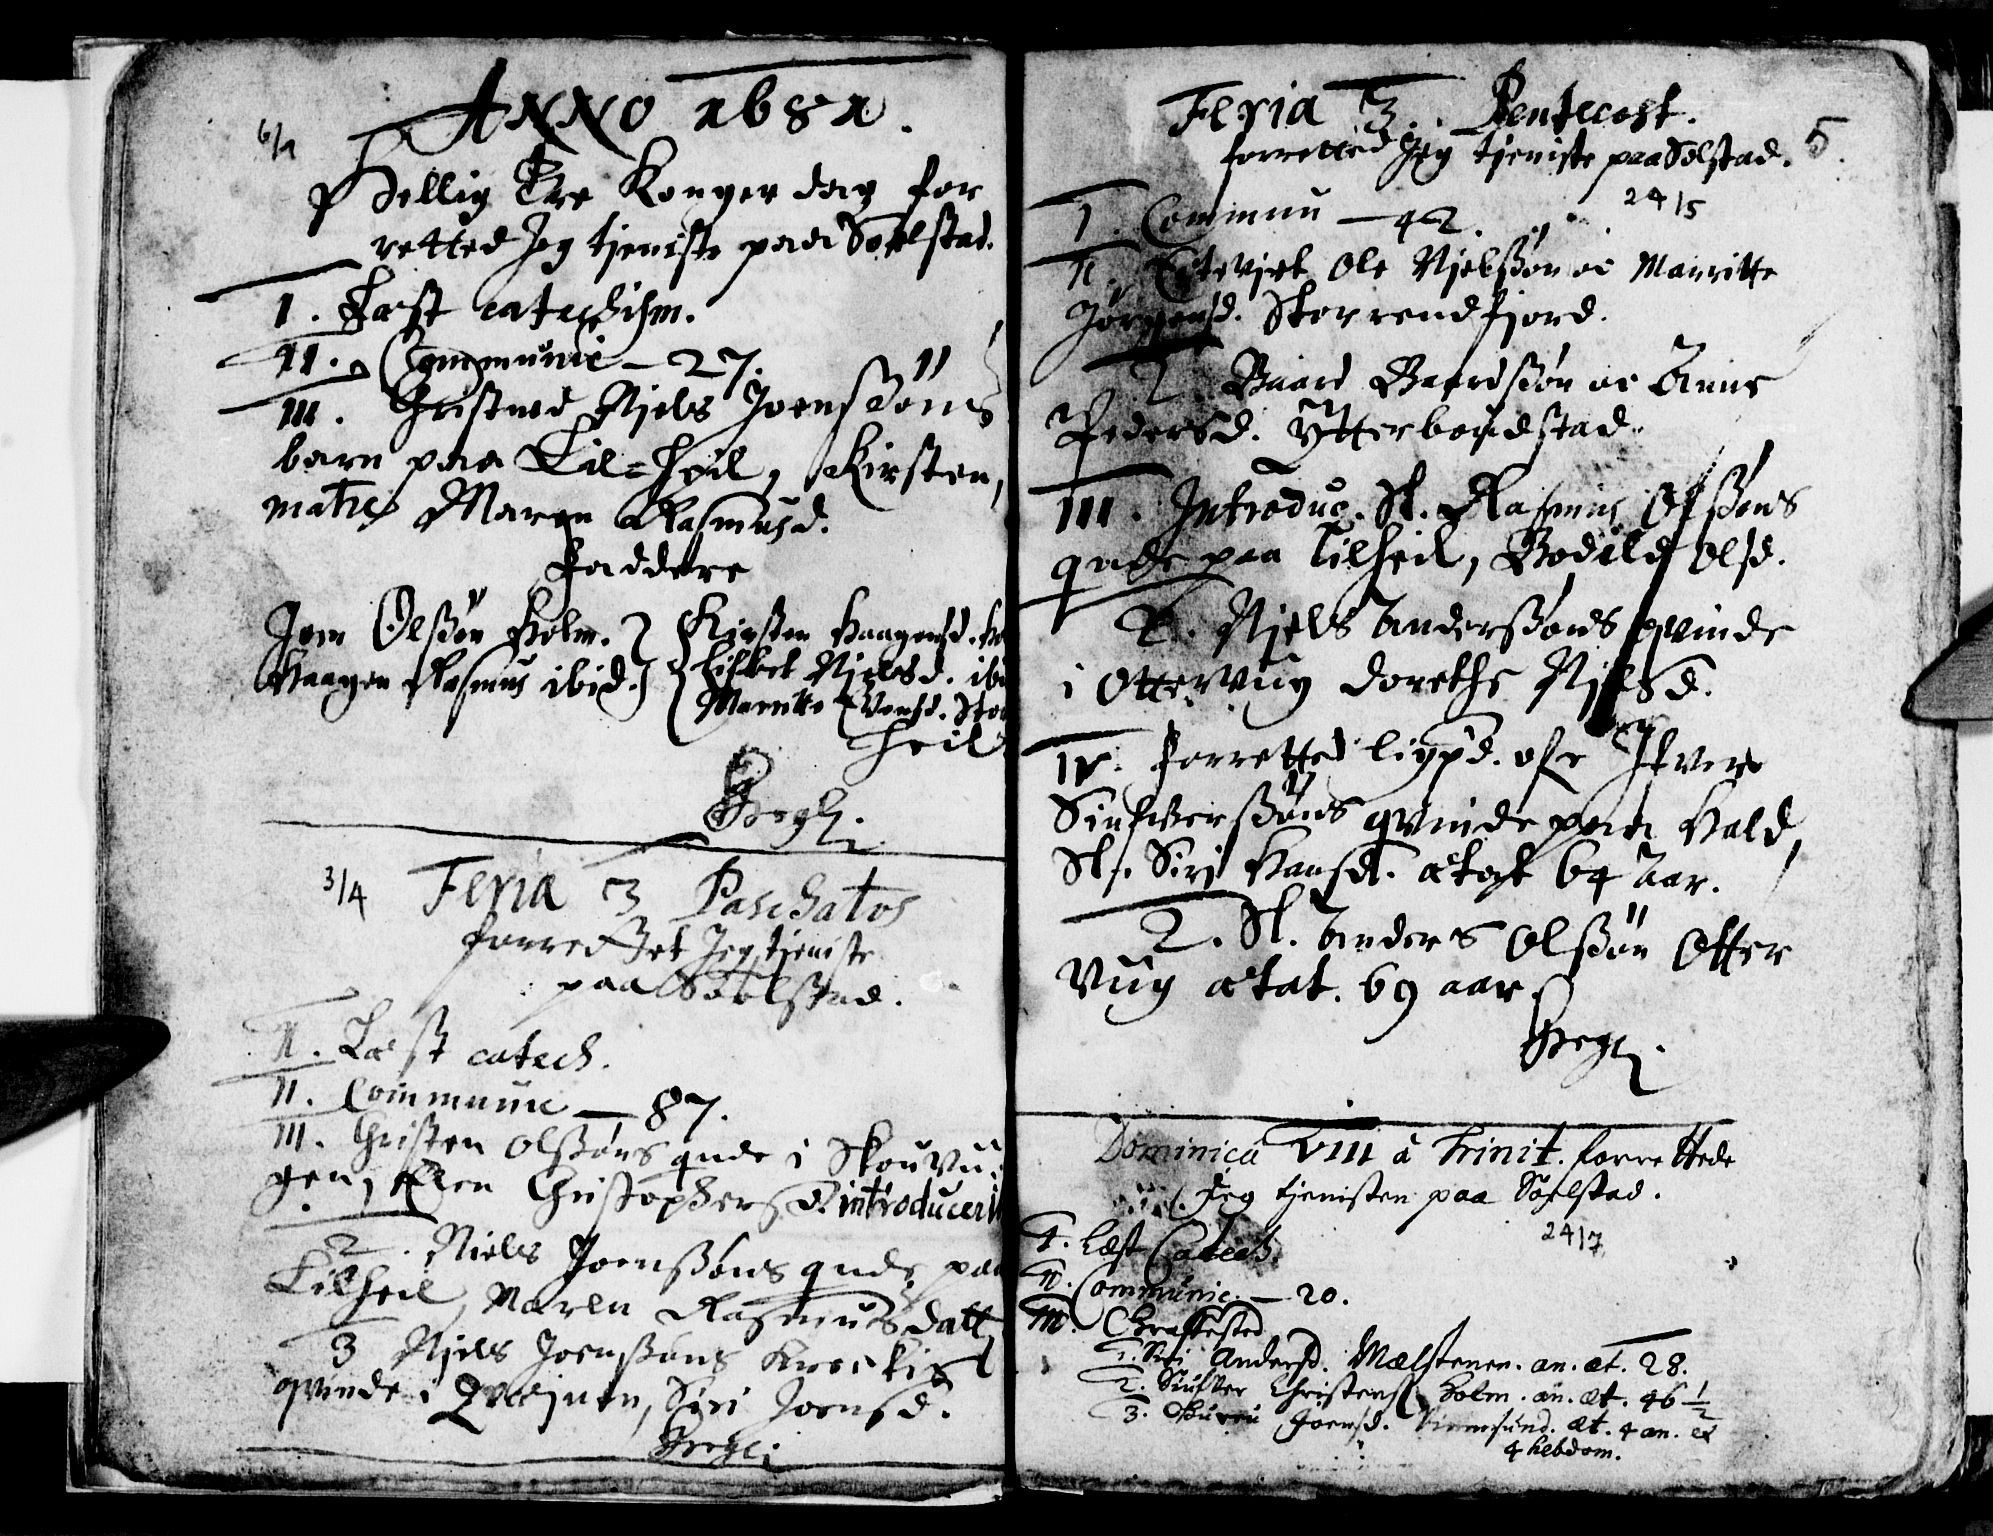 ANNO 1681.
6/1
Hellig Tre Konger dag for
retted Jeg tjeniste paa Sølstad.
I. Læst catechism.
II. Communic — 27.
III. Christned Njels Joenssøns
barn paa Lil=heil, Kirsten,
matre Maren Rasmusd.
Faddere
Joen Olssøn Holm. Kirsten Haagensd.
Haagen Rasmus ibid. Lisbet Nielsd. ibid
Maritte Evensd. Stor
heil
Begl.
3/4 Feria 3 Paschatos
forrettet Jeg tjeniste
paa Sølstad.
I. Læst catech.
II. Communic — 87.
III. Christen Olssøns qnde i Skouvu
gen, Ellen Christophersd. introducerit
2. Niels Joenssøns qnde paa
Lilheil, Maren Rasmusdatt
3 Njels Joenssøns
qvinde i, Siri Joensd.
Begl.
Feria 3. Pentecost.
forretted Jeg tjeniste paa Sølstad. 5.
24/5
I. Commun — 42.
II. Ole Njelssøn oc Marritte
Jørgensd. Storrendfjord.
2. Baard Baardssøn oc Anne
Pedersd. Ytterboudstad.
III. Introduc. Sl. Rasmus Olssøns
qnde paa Lilheil, Bodild Olsd.
2. Njels Anderssøns qvinde
i Ottervug Dorethe Njelsd.
IV. Forretted ligpd. ofr Ifver
Siufverssøns qvinde paa Hald,
Sl. Siri Hansd. ætat 64 aar.
2. Sl. Anders Olssøn Otter
vug ætat. 69 aar
Begl.
Dominica VIII à Trinit. forrettede
Jeg tjenisten paa Sølstad.
24/7
I. Læst Catech
II. Communic. — 20.
III. Graffested
1. Siri Andersd. Mælstenen. an. æt. 28.
2. Siufver Christens. Holm. an. æt. 46 1/2
3. Joensd. æt. 4 an. et
4 hebdom.